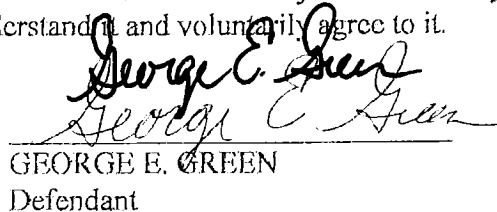 erstand it and voluntarily agree to it.
George E. Green
George E. Green
GEORGE E. GREEN
Defendant